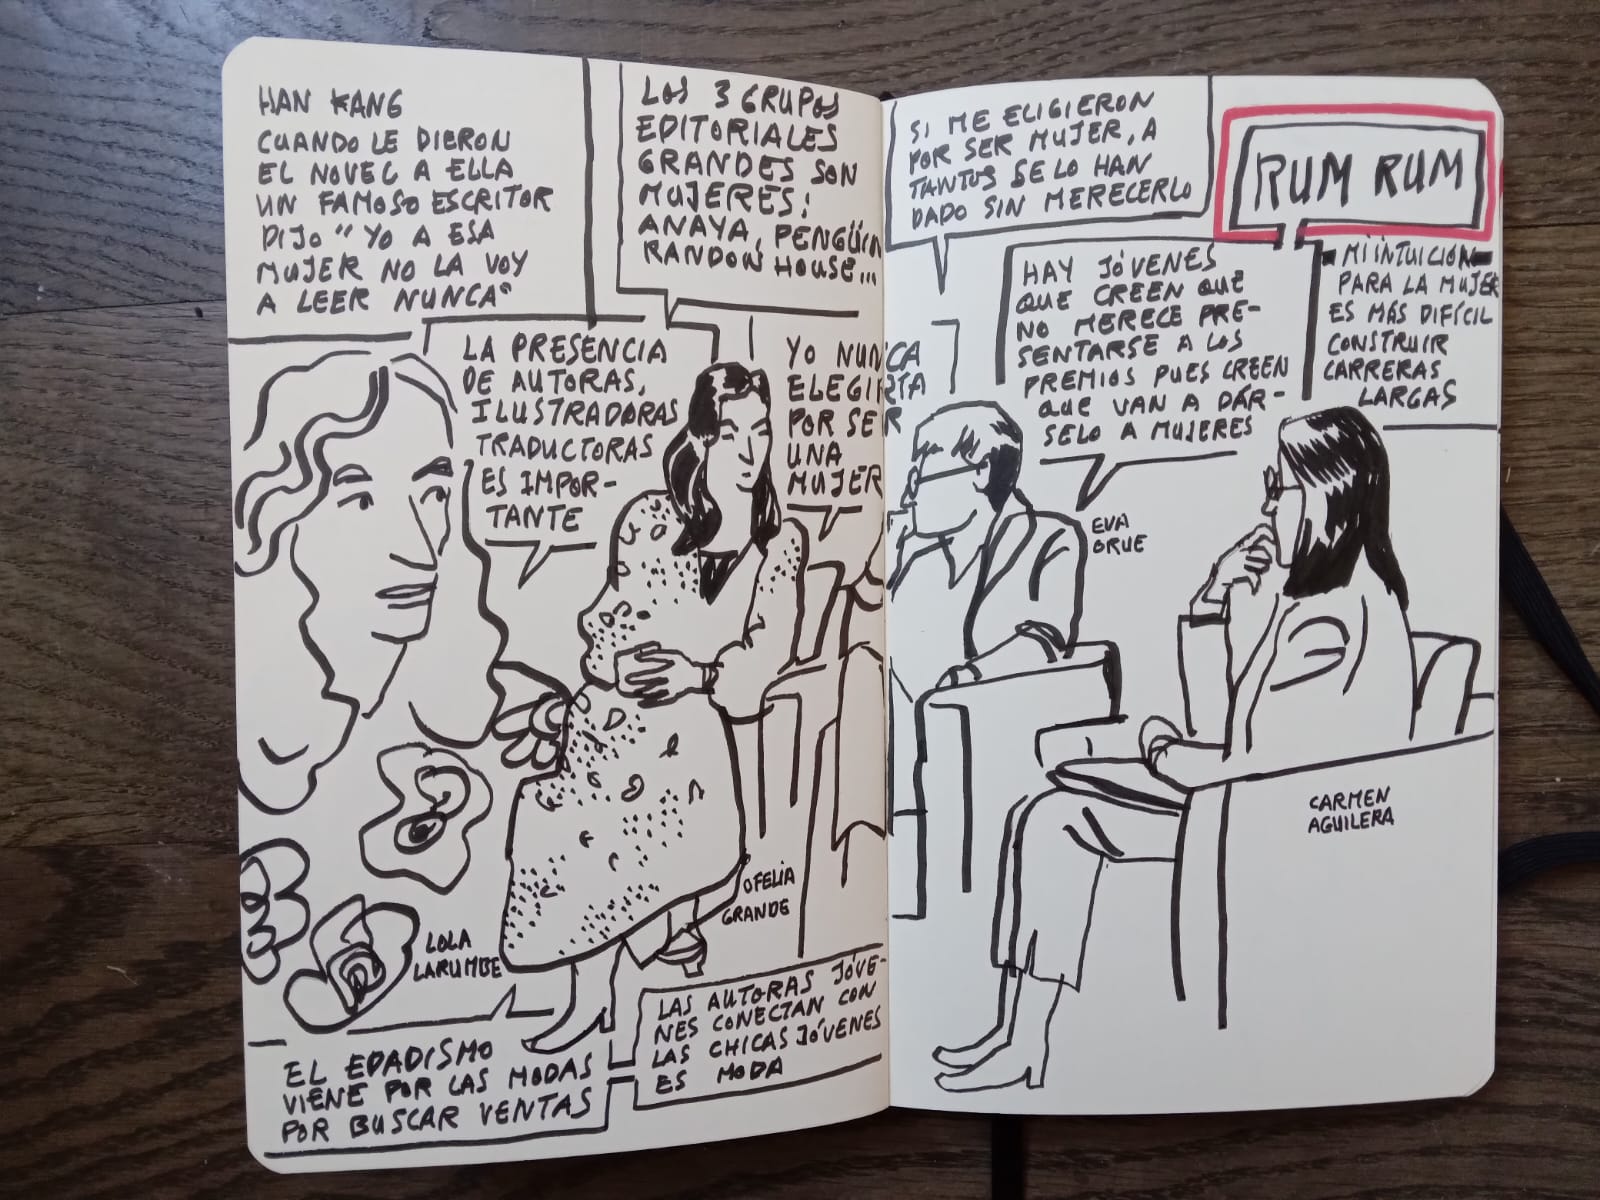 HAN KANG
CUANDO LE DIERON
EL NOVEL A ELLA
UN FAMOSO ESCRITOR
DIJO "YO A ESA
MUJER NO LA VOY
A LEER NUNCA"
LOS 3 GRUPOS
EDITORIALES
GRANDES SON
MUJERES:
ANAYA, PENGÜIN
RANDON HOUSE...
LA PRESENCIA
DE AUTORAS,
ILUSTRADORAS
TRADUCTORAS
ES IMPOR-
TANTE
YO NUNCA
ELEGIRÍA
POR SER
UNA
MUJER
LOLA
LARUMBE
OFELIA
GRANDE
EL EDADISMO
VIENE POR LAS MODAS
POR BUSCAR VENTAS
LAS AUTORAS JÓVE-
NES CONECTAN CON
LAS CHICAS JÓVENES
ES MODA
SI ME ELIGIERON
POR SER MUJER, A
TANTOS SE LO HAN
DADO SIN MERECERLO
RUM RUM
HAY JÓVENES
QUE CREEN QUE
NO MERECE PRE-
SENTARSE A LOS
PREMIOS PUES CREEN
QUE VAN A DÁR-
SELO A MUJERES
MI INTUICIÓN
PARA LA MUJER
ES MÁS DIFÍCIL
CONSTRUIR
CARRERAS
LARGAS
EVA
ORUE
CARMEN
AGUILERA